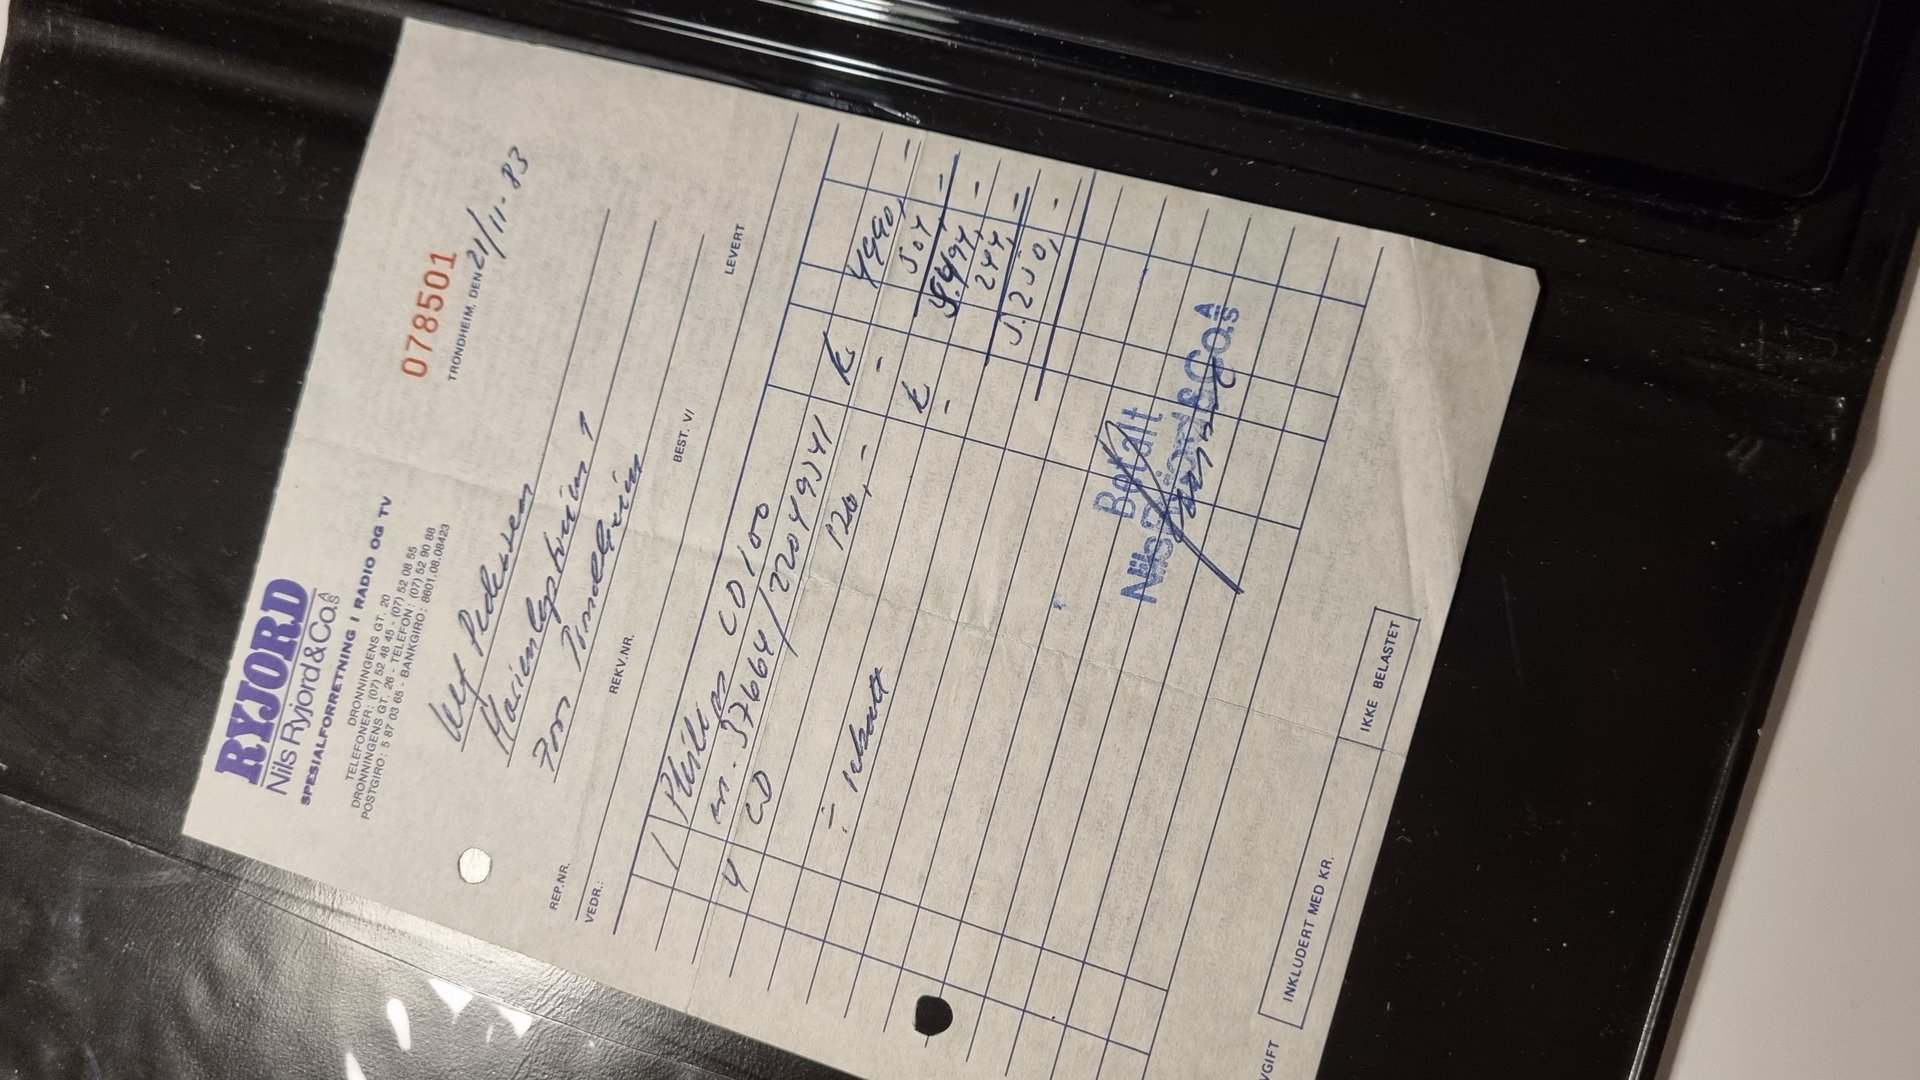 RYJORD
Nils Ryjord & Co. A/S
SPESIALFORRETNING I RADIO OG TV
DRONNINGENS GT. 20
TELEFONER: (07) 52 48 45 - (07) 52 08 55
DRONNINGENS GT. 26 - TELEFON: (07) 52 90 88
POSTGIRO: 5 87 03 65 - BANKGIRO: 8601.08.08423
078501
TRONDHEIM, DEN 21/11-83
Pedersen
7000 Trondheim
REP.NR. REKV.NR. BEST. V/ LEVERT
VEDR.:
1 Phillips CD 100 k. 4990,-
nr. 37664/22049341
4 CD 126,- - 504,-
k. 5.494,-
÷ rabatt - 244,-
5.250,-
Betalt
Nils Ryjord & Co. A/S
IKKE BELASTET
INKLUDERT MED KR.
VGIFT